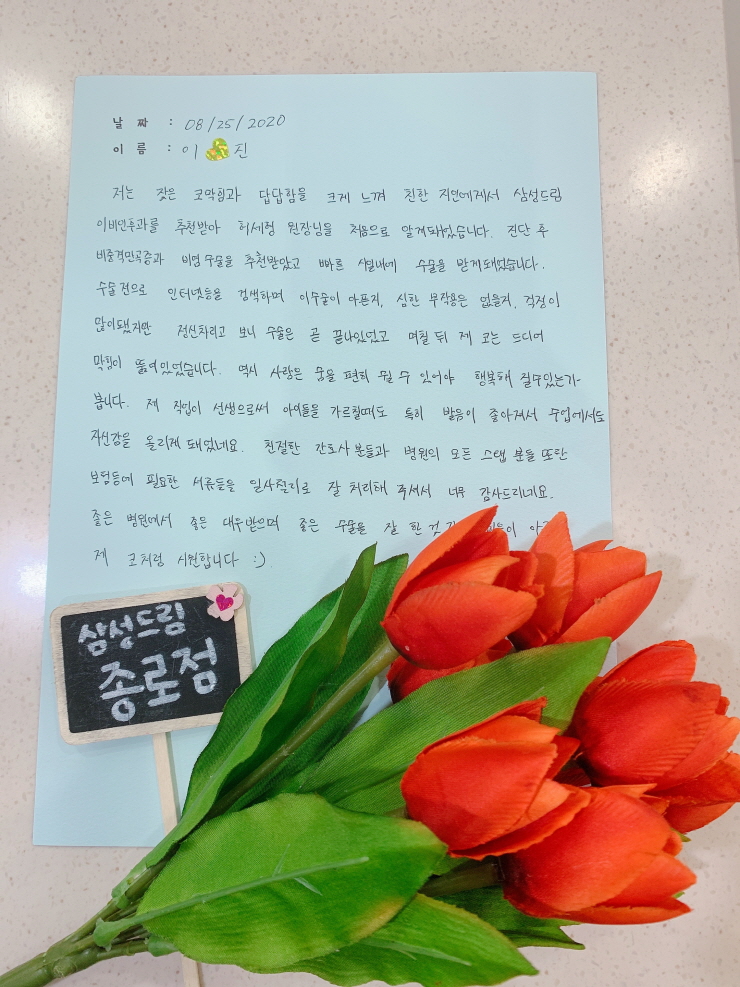 날 짜 : 08/25/2020
이 름 : 이 진
저는 잦은 코막힘과 답답함을 크게 느껴 친한 지인에게서 삼성드림
이비인후과를 추천받아 허세형 원장님을 처음으로 알게돼었습니다. 진단 후
비중격만곡증과 비염 수술을 추천받았고 빠른 시일내에 수술을 받게돼었습니다.
수술 전으로 인터넷등을 검색하며 이수술이 아픈지, 심한 부작용은 없을지, 걱정이
많이됐지만 정신차리고 보니 수술은 곧 끝나있었고 며칠 뒤 제 코는 드디어
막힘이 뚫려있었습니다. 역시 사람은 숨을 편히 쉴 수 있어야 행복해 질수있는가
봅니다. 제 직업이 선생으로써 아이들을 가르칠때도 특히 발음이 좋아져서 수업에서도
자신감을 올리게 돼었네요. 친절한 간호사 분들과 병원의 모든 스탭 분들 또한
보험등에 필요한 서류들을 일사천리로 잘 처리해 주셔서 너무 감사드리네요.
좋은 병원에서 좋은 대우받으며 좋은 수술을 잘 한 것
제 코처럼 시원합니다 :)
삼성드림
종로점